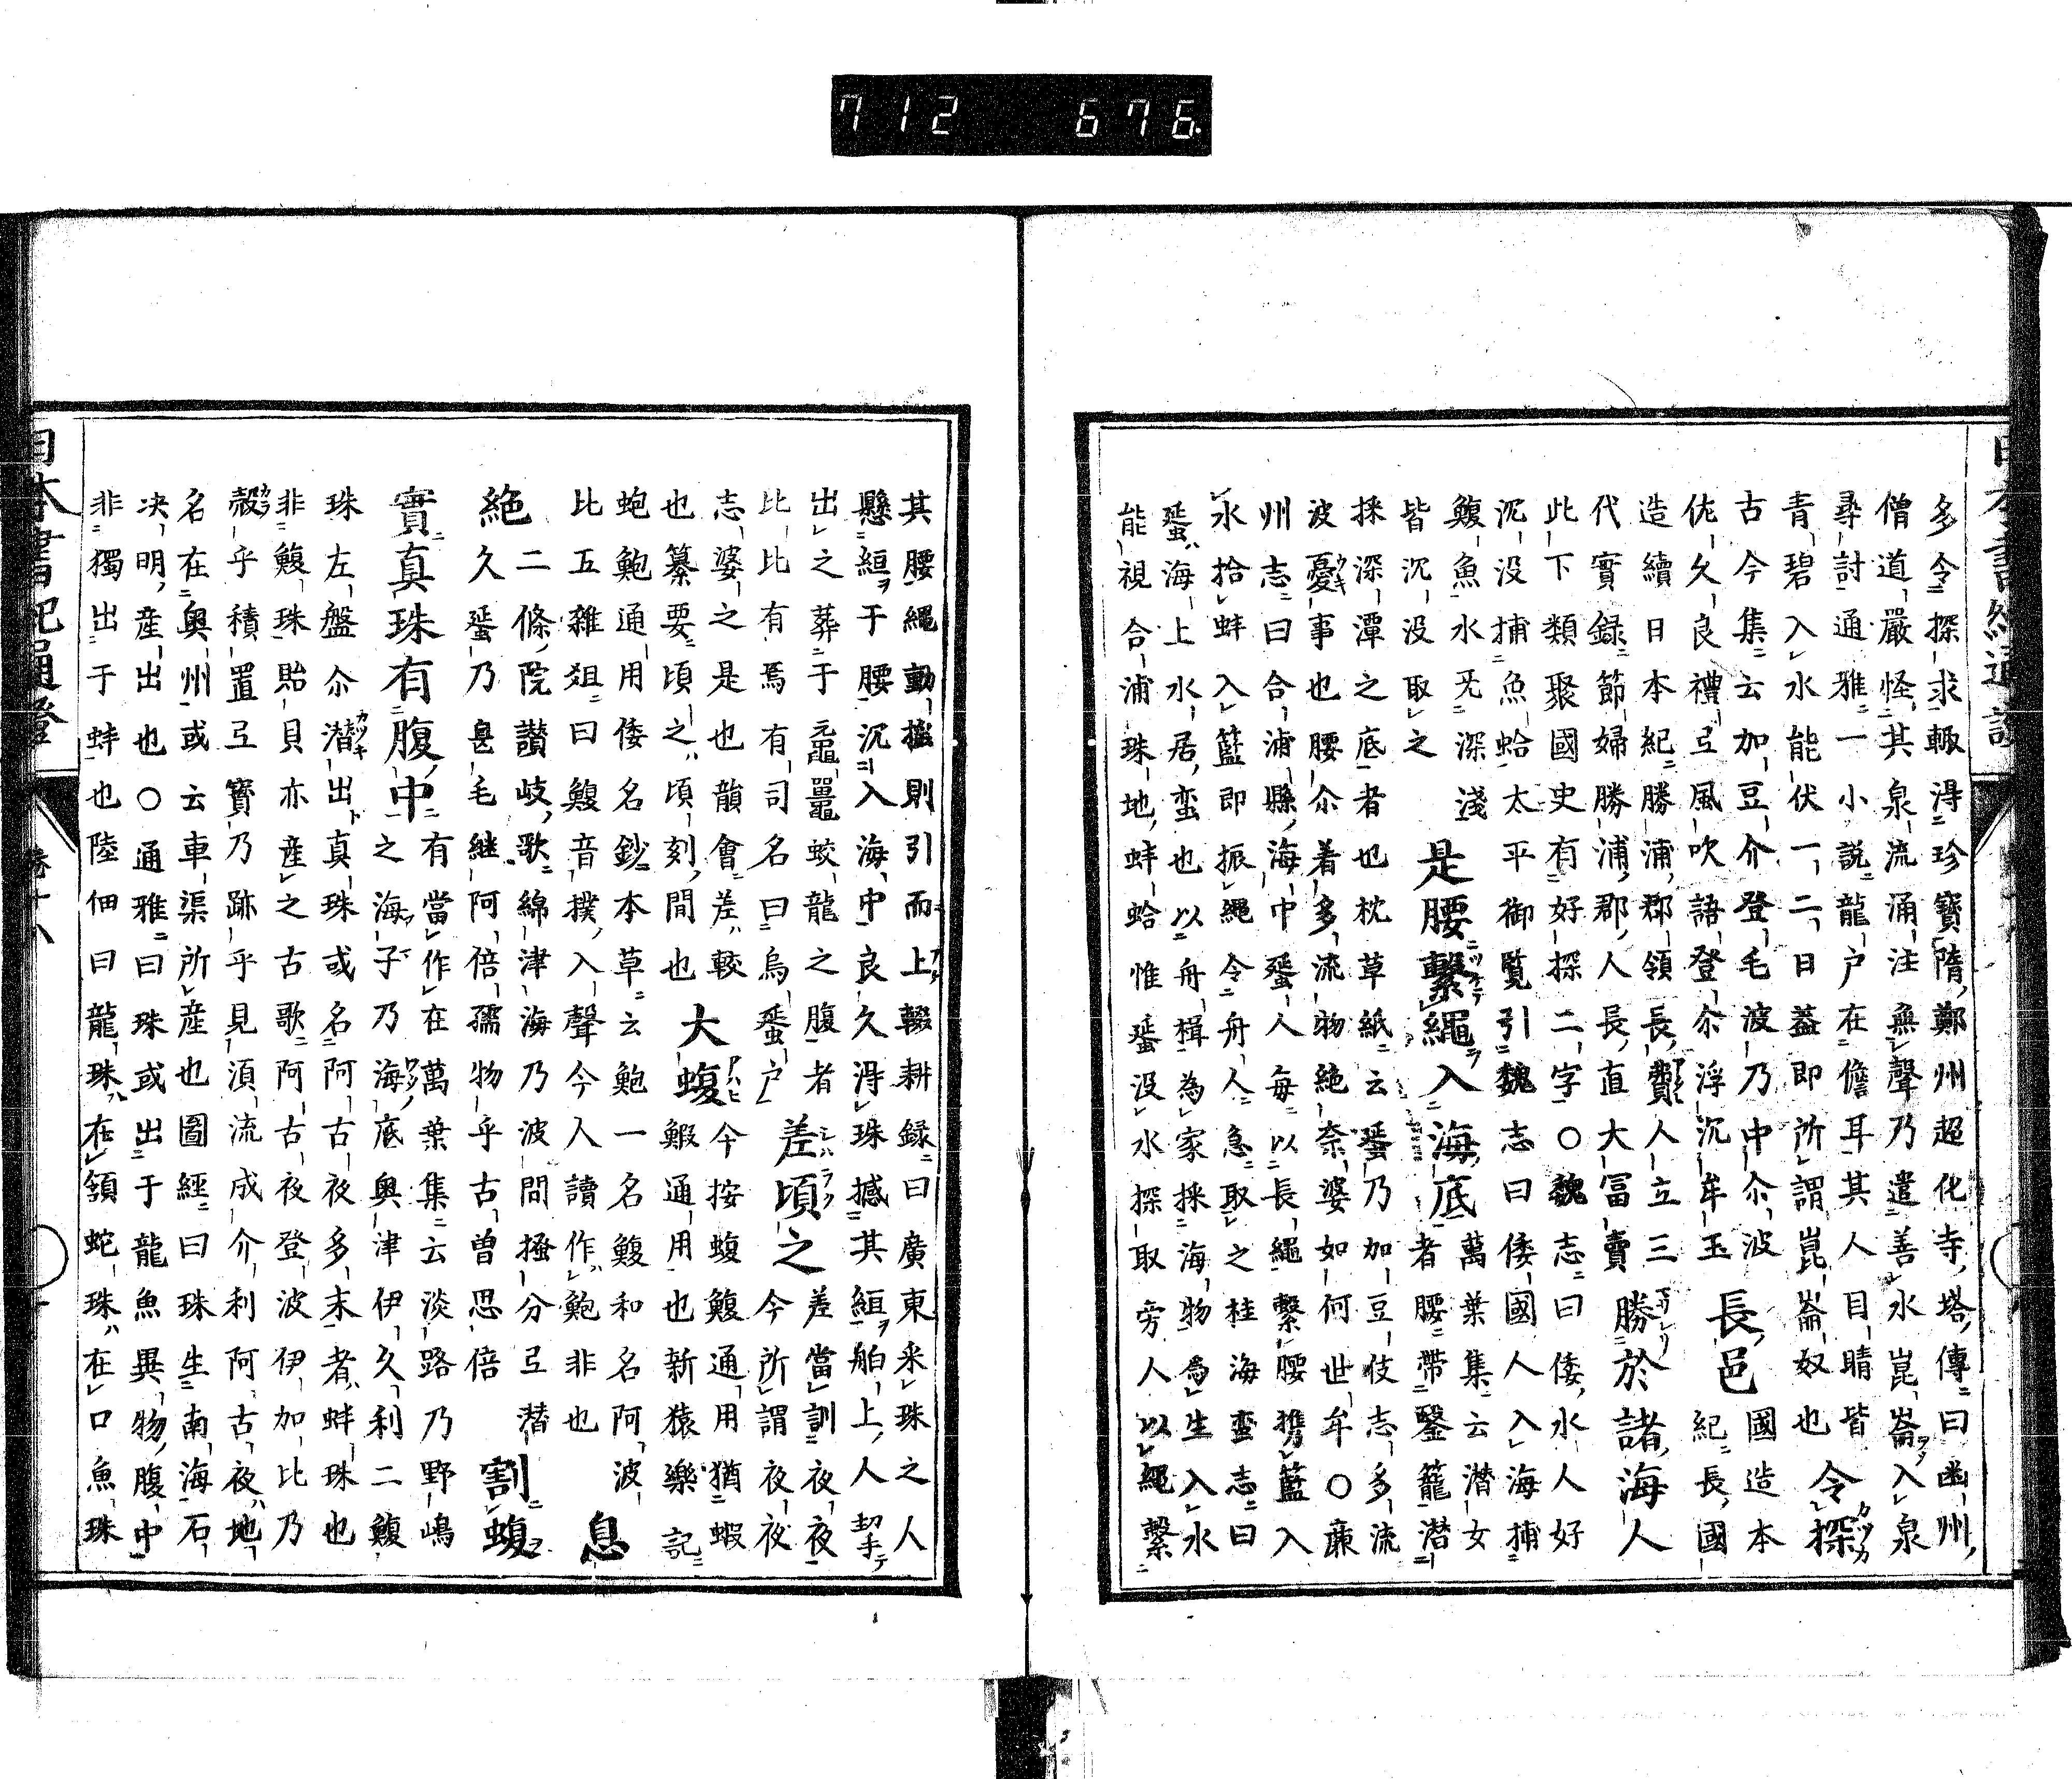 712 676.
多令探求輙淂珍寶隋鄭州超化寺塔傳曰凾州
僧道嚴怪其泉流涌注無聲乃遣善水崑崙入泉
尋討通雅一小說龍户在儋耳其人目睛皆
青碧入水能伏一二日葢即所謂崑崙奴也 令探
古今集云加豆介登毛波乃中尒波
佐久良禮弖風吹語登尒浮沉牟玉 長邑 國造本
紀長國
造續日本紀勝浦郡領長費人立三
代實錄節婦勝浦郡人長直大冨賣 勝於諸海人
此下類聚國史有好探二字○魏志曰倭水人好
沉没捕魚蛤太平御覧引魏志曰倭國人入海捕
鰒魚水旡深淺
皆沉没取之 是腰繫繩入海底 萬葉集云潜女
者腰帶鑿籠潜
採深潭之底者也枕草紙云蜑乃加豆伎志多流
波憂事也腰尒着多流物絶奈婆如何世牟○廉
州志曰合浦縣海中蜑人每以長繩繫腰携籃入
水拾蚌入籃即振繩令舟人急取之桂海蛮志曰
蜑海上水居蛮也以舟楫為家採海物為生入水
能視合浦珠地蚌蛤惟蜑没水探取旁人以繩繫
其腰繩動搖則引而上輟耕録曰廣東采珠之人
懸絙于腰沉入海中良久淂珠撼其絙舶上人挈
出之葬于黿鼉蛟龍之腹者
比比有焉有司名曰烏蜑户 差頃之 差當訓夜夜
今所謂夜夜
志婆之是也韻會差較
也纂要頃之頃刻間也 大蝮 今按蝮鰒通用猶蝦
鰕通用也新猿樂記
蚫鮑通用倭名鈔本草云鮑一名鰒和名阿波
比五雜爼曰鰒音撲入聲今人讀作鮑非也 息
絶 二條院讃岐歌綿津海乃波間掻分弖潜
久蜑乃息毛継阿倍孺物乎古曽思倍 割蝮
實真珠有腹中 有當作在萬葉集云淡路乃野嶋
之海子乃海底奥津伊久利二鰒
珠左盤尒潜出真珠或名阿古夜多末者蚌珠也
非鰒珠貽貝亦産之古歌阿古夜登波伊加比乃
殻乎積置弖寳乃跡乎見湏流成介利阿古夜地
名在奥州或云車渠所産也圖經曰珠生南海石
决明産出也○通雅曰珠或出于龍魚異物腹中
非獨出于蚌也陸佃曰龍珠在頷蛇珠在口魚珠
日本書紀通證
卷十八